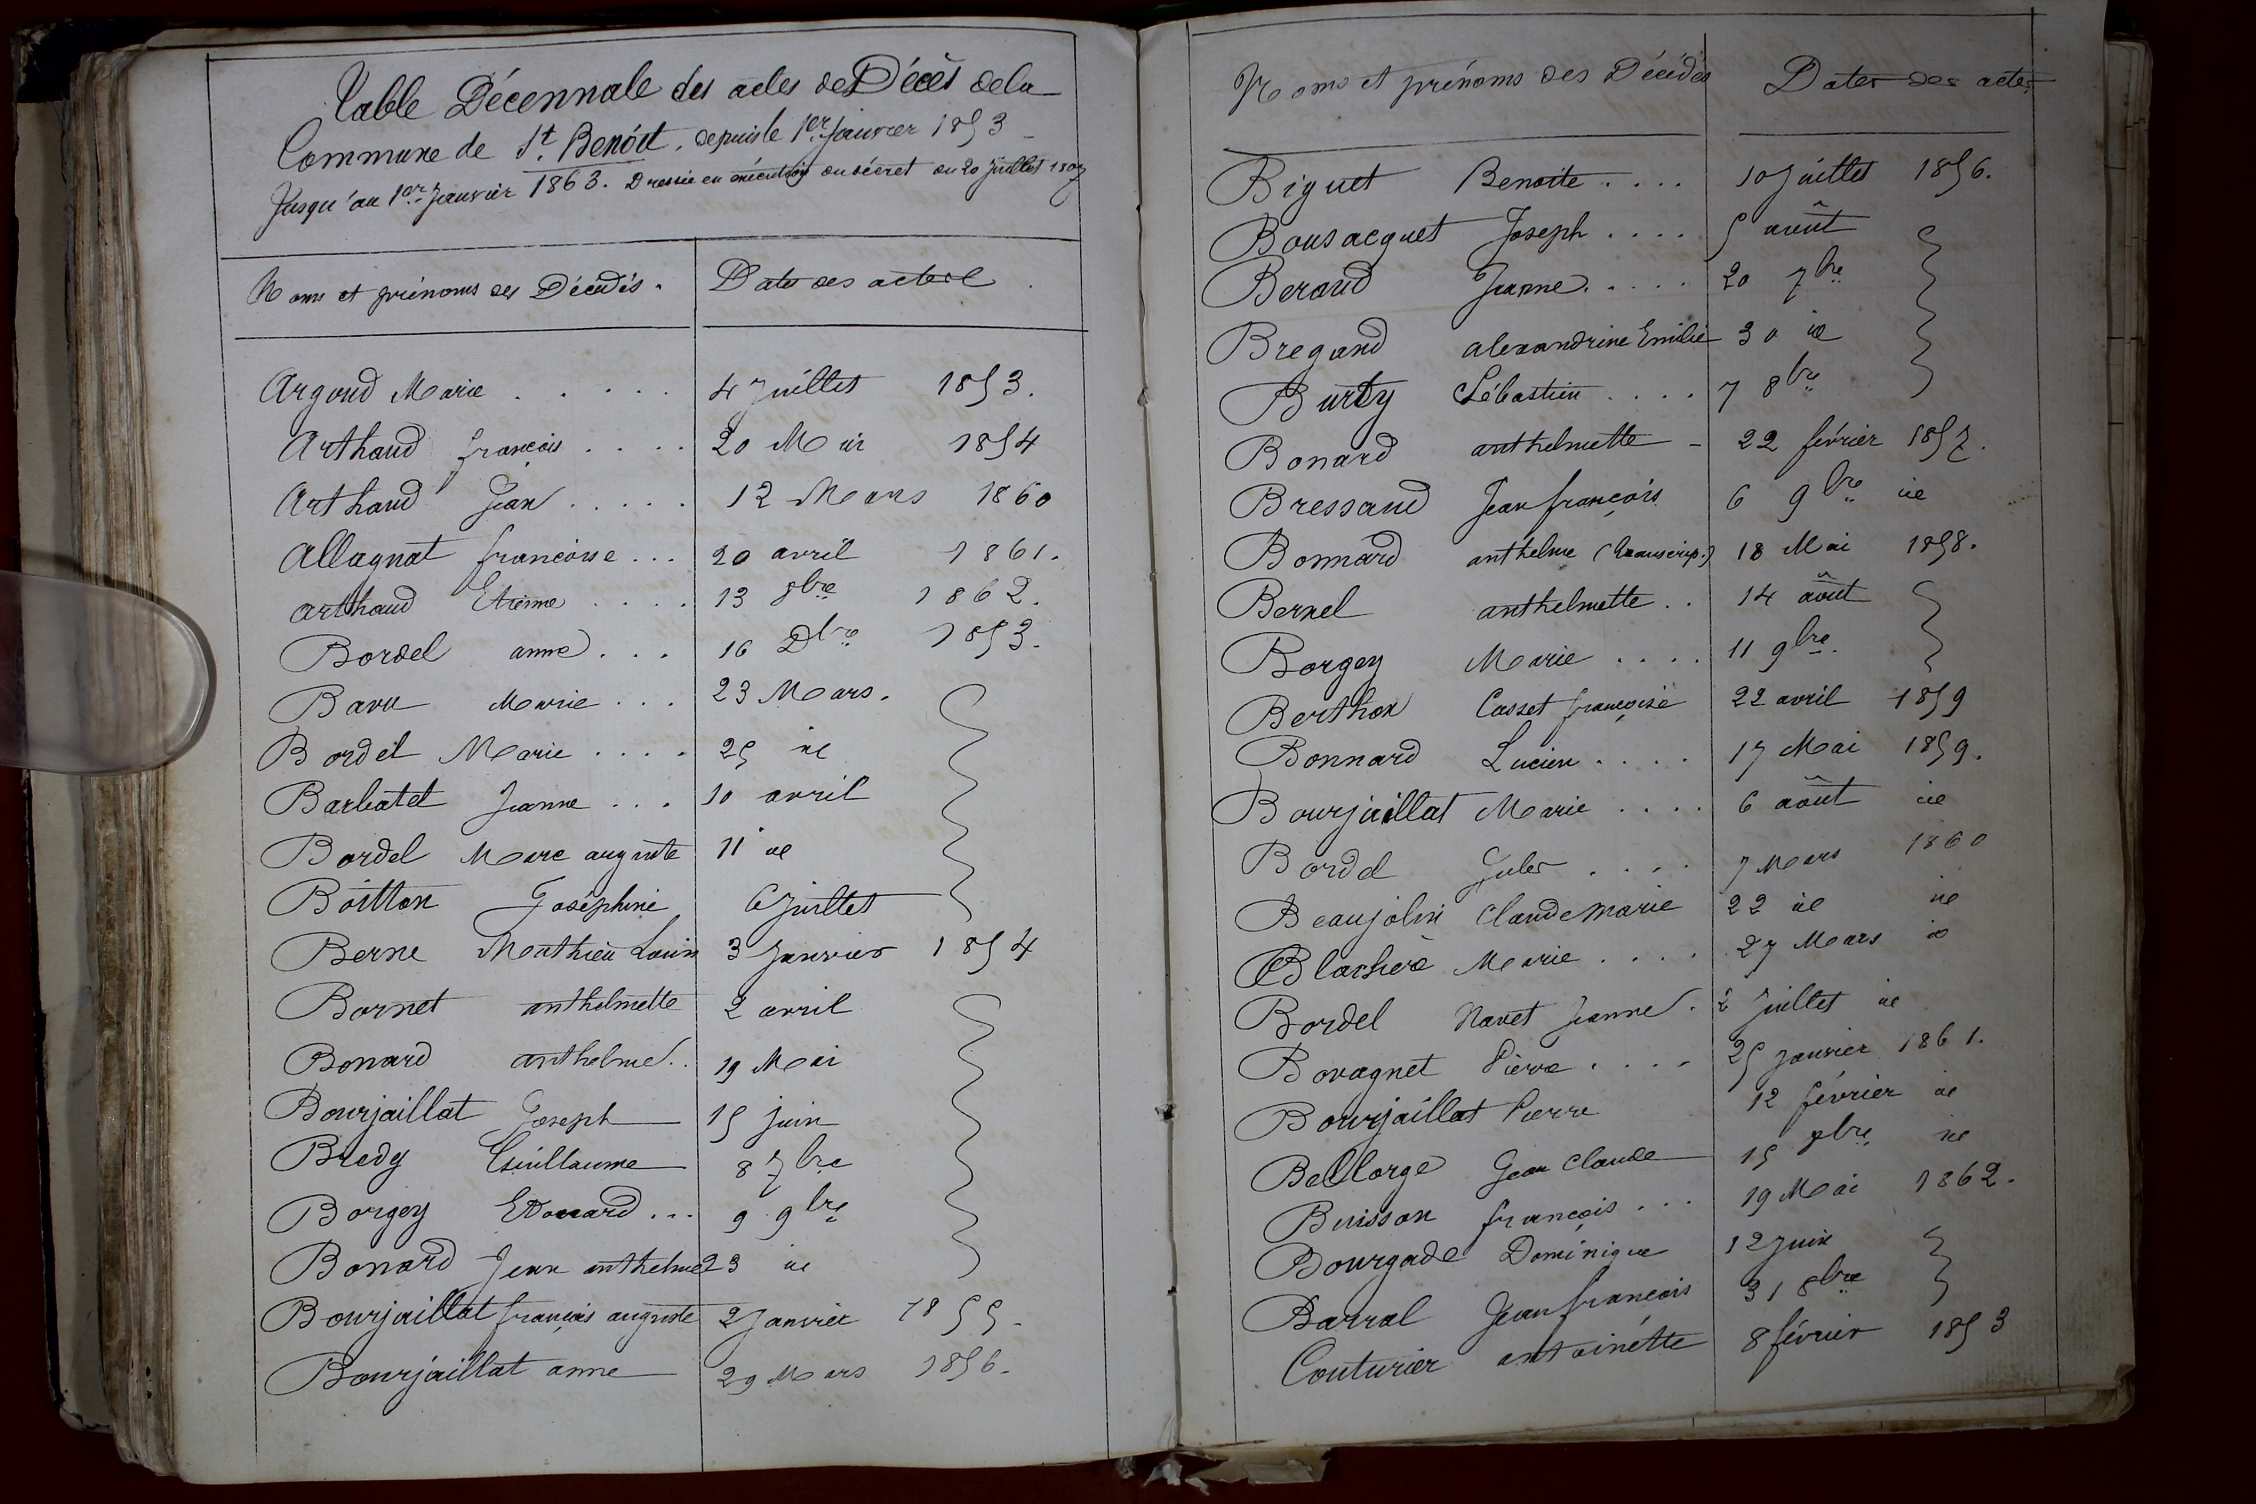 Table Décennale des actes de Décès de la
Commune de St. Benoit, depuis le 1er Janvier 1853
Jusqu'au 1er Janvier 1863. Dressée en exécution du décret du 20 Juillet 1807
Noms et prénoms des Décédés. Dates des actes
Argoud Marie ..... 4 Juillet 1853.
Arthaud françois .... 20 Mai 1854
Arthaud Jean ..... 12 Mars 1860
Allagnat francoise ... 20 avril 1861.
Arthaud Etienne .... 13 8bre 1862.
Bordel anne ... 16 Dbre 1853.
Bavu Marie ... 23 Mars.
Bordel Marie .... 25 id
Barbatet Jeanne ... 10 avril
Bordel Marc auguste 11 id
Boitton Joséphine 6 Juillet
Berne Mathieu Louis 3 Janvier 1854
Bornet anthelmette 2 avril
Bonard anthelme .. 19 Mai
Bourjaillat Joseph 15 juin
Bredy Guillaume 8 7bre
Borgey Edouard ... 9 9bre
Bonard Jean anthelme 23 id
Bourjaillat françois auguste 2 Janvier 1855.
Bourjaillat anne 29 Mars 1856.
Noms et prénoms des Décédés Dates des actes
Biguet Benoite .... 10 Juillet 1856.
Bousacquet Joseph .... 5 août
Beroud Jeanne ..... 20 7bre
Bregand alexandrine Emilie 30 id
Burty Sébastien .... 7 8bre
Bonard anthelmette - 22 février 1857.
Bressand Jean françois 6 9bre id
Bonnard anthelme 18 Mai 1858.
Bernel anthelmette .. 14 août
Borgey Marie .... 11 9bre.
Berthon Casset françoise 22 avril 1859
Bonnard Lucien .... 17 Mai 1859.
Bourjaillat Marie .... 6 août id
Bordel Jules .... 7 Mars 1860
Beaujolin Claude Marie 22 id id
Blachère Marie .... 27 Mars id
Bordel Navet Jeanne . 2 Juillet id
Bovagnet Pierre .... 25 janvier 1861.
Bourjaillat Pierre 12 février id
Bellorge Jean Claude 15 9bre id
Buisson françois ... 19 Mai 1862.
Bourgade Dominique 12 Juin
Barral Jean françois 31 8bre
Couturier antoinette 8 février 1853